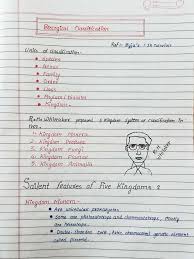 Biological Classification
Ref - Byju's : 3D Tutorials
Units of classification:-
• Species
• Genus
• Family
• Order
• Class
• Phylum / Division
• Kingdom.
R.H. Whittaker proposed 5 kingdom system of classification
They
1. Kingdom Monera
2. Kingdom Protista
3. Kingdom Fungi
4. Kingdom Plantae
5. Kingdom Animalia
R.H. Whittaker
Salient features of Five Kingdoms :
Kingdom Monera:-
• Are unicellular prokaryotes
• Some are photoautotrophs and chemoautotrophs, mostly are heterotrophs.
• Double-stranded extra chromosomal genetic element called plasmid.